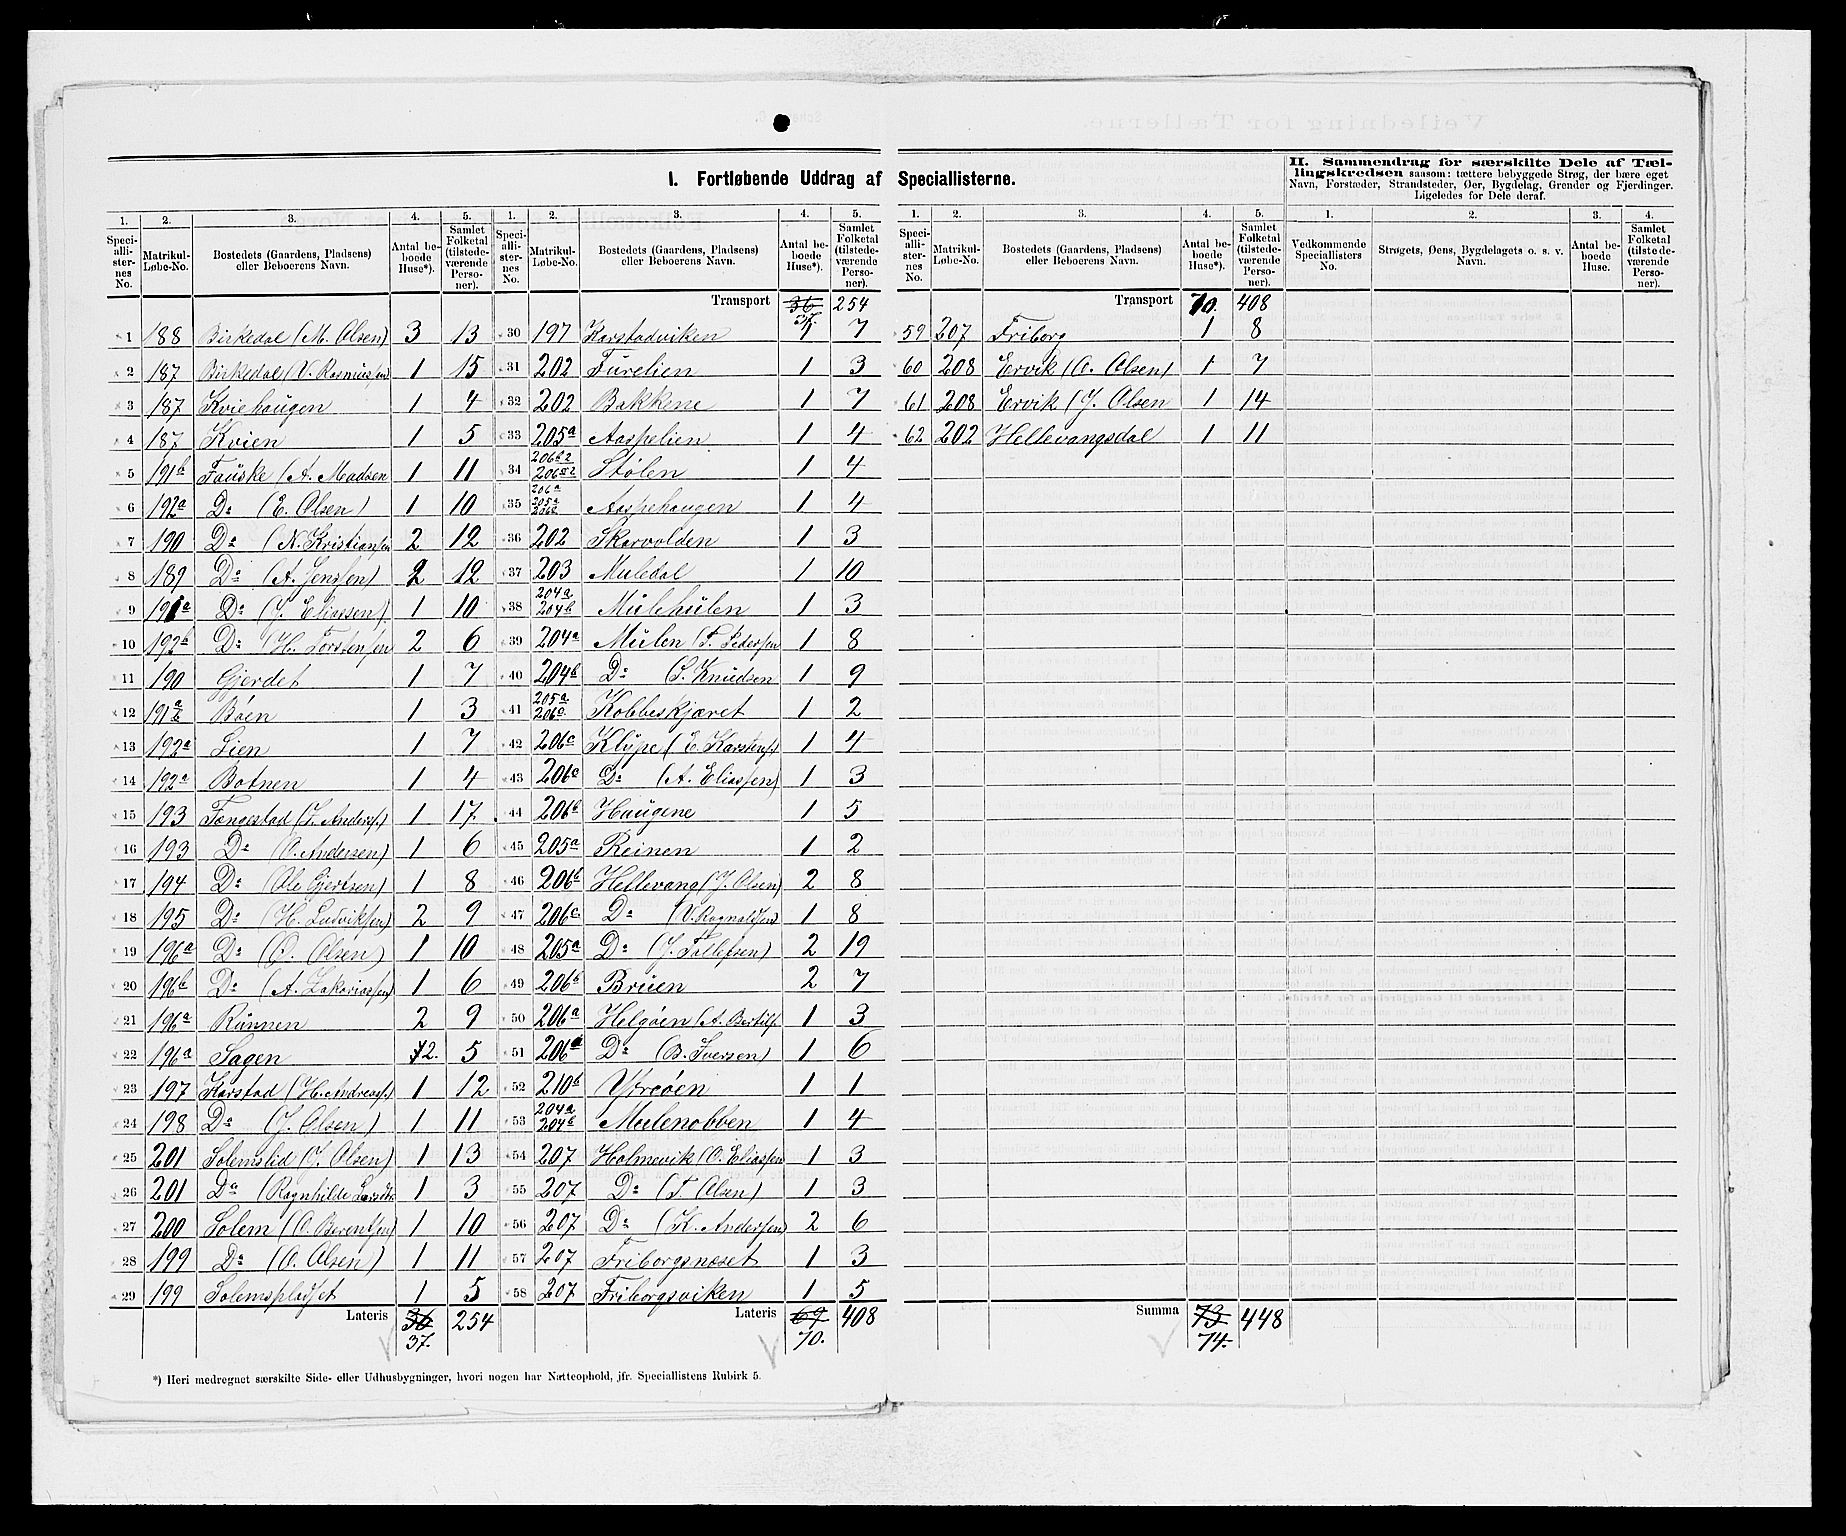 I. Fortløbende Uddrag af Speciallisterne.
II. Sammendrag for særskilte Dele af Tæl-
lingskredsen saasom: tættere bebyggede Strøg, der bære eget
Navn, Forstæder, Strandsteder, Øer, Bygdelag, Grender og Fjerdinger.
Ligeledes for Dele deraf.
1. 2. 3. 4. 5.
Speciallisternes No. Matrikul-Løbe-No. Bostedets (Gaardens, Pladsens) eller Beboerens Navn. Antal beboede Huse*). Samlet Folketal (tilstedeværende Personer).
1 188 Birkedal (M. Olsen) 3 13
2 187 Birkedal (V. Rasmussen 1 15
3 187 Kviehaugen 1 4
4 187 Kvien 1 5
5 191b Fauske (A. Madsen 1 11
6 192a Do (E. Olsen) 1 10
7 190 Do (N. Kristiansen 2 12
8 189 Do (A. Jenssen) 2 12
9 191a Do (J. Eliassen) 1 10
10 192b Do (H. Torstensen 2 6
11 190 Gjerdet 1 7
12 191 a b Bøen 1 3
13 192a Lien 1 7
14 192a Botnen 1 4
15 193 Tongestad (I. Anders.) 1 17
16 193 Do (O. Andersen) 1 6
17 194 Do (Ole Gjertsen) 1 8
18 195 Do (H. Ludviksen) 2 9
19 196a Do (O. Olsen) 1 10
20 196b Do (A. Zakariassen) 1 6
21 196a Rünnen 2 9
22 196a Sagen 2. 5
23 197 Karstad (H. Andreas.) 1 12
24 198 Do (J. Olsen) 1 11
25 201 Solemslid (J. Olsen) 1 13
26 201 Do (Ragnhilde 1 3
27 200 Solem (O. Berentsen) 1 10
28 199 Do (O. Olsen) 1 11
29 199 Solemspladset 1 5
Lateris 36 37. 254
1. 2. 3. 4. 5.
Speciallisternes No. Matrikul-Løbe-No. Bostedets (Gaardens, Pladsens) eller Beboerens Navn. Antal beboede Huse*). Samlet Folketal (tilstedeværende Personer).
Transport 36 37. 254
30 197 Karstadviken 1 7
31 202 Furelien 1 3
32 202 Bakkene 1 7
33 205a Aaspelien 1 4
34 206b2 206a2 Stølen 1 4
35 206a 205a 206b Aaspehaugen 1 4
36 202 Skarvolden 1 3
37 203 Muledal 1 10
38 204a 204b Mülehülen 1 3
39 204a Mülen (T. Pedersen 1 8
40 204b Do (S. Knudsen 1 9
41 205a 206a Kobbeskjæret 1 2
42 206c Klÿpe (E Karstens.) 1 4
43 206a Do (A. Eliassen) 1 3
44 206b Haugene 1 5
45 205a Reinen 1 2
46 206b Hellevang (J. Olsen) 2 8
47 206c Do (V. Ragnaldsen) 1 8
48 205a Do (J. Tollefsen) 2 19
49 206b Brüen 2 7
50 206a Helgøen (A. Bertils. 1 3
51 206a Do (B. Iversen) 1 6
52 210b Ytreøen 1 1
53 204a 204b Mulenobben 1 4
54 207 Holmevik (O. Eliassen 1 3
55 207 Do (T. Olsen) 1 3
56 207 Do (K. Andersen) 2 6
57 207 Friborgsnæset 1 3
58 207 Friborgsviken 1 5
Lateris 69 70. 408
1. 2. 3. 4. 5.
Speciallisternes No. Matrikul-Løbe-No. Bostedets (Gaardens, Pladsens) eller Beboerens Navn. Antal beboede Huse*). Samlet Folketal (tilstedeværende Personer).
Transport 70. 408
59 207 Friborg 1 8
60 208 Ervik (O. Olsen) 1 7
61 208 Ervik (J. Olsen 1 14
62 202 Hellevangsdal 1 11
Summa 73 74. 448
1. 2. 3. 4.
Vedkommende Speciallisters No. Strøgets, Øens, Bygdelagets o. s. v. Navn. Antal beboede Huse. Samlet Folketal (tilstedeværende Personer).
*) Heri medregnet særskilte Side- eller Udhusbygninger, hvori nogen har Natteophold, jfr. Speciallistens Rubirk 5.